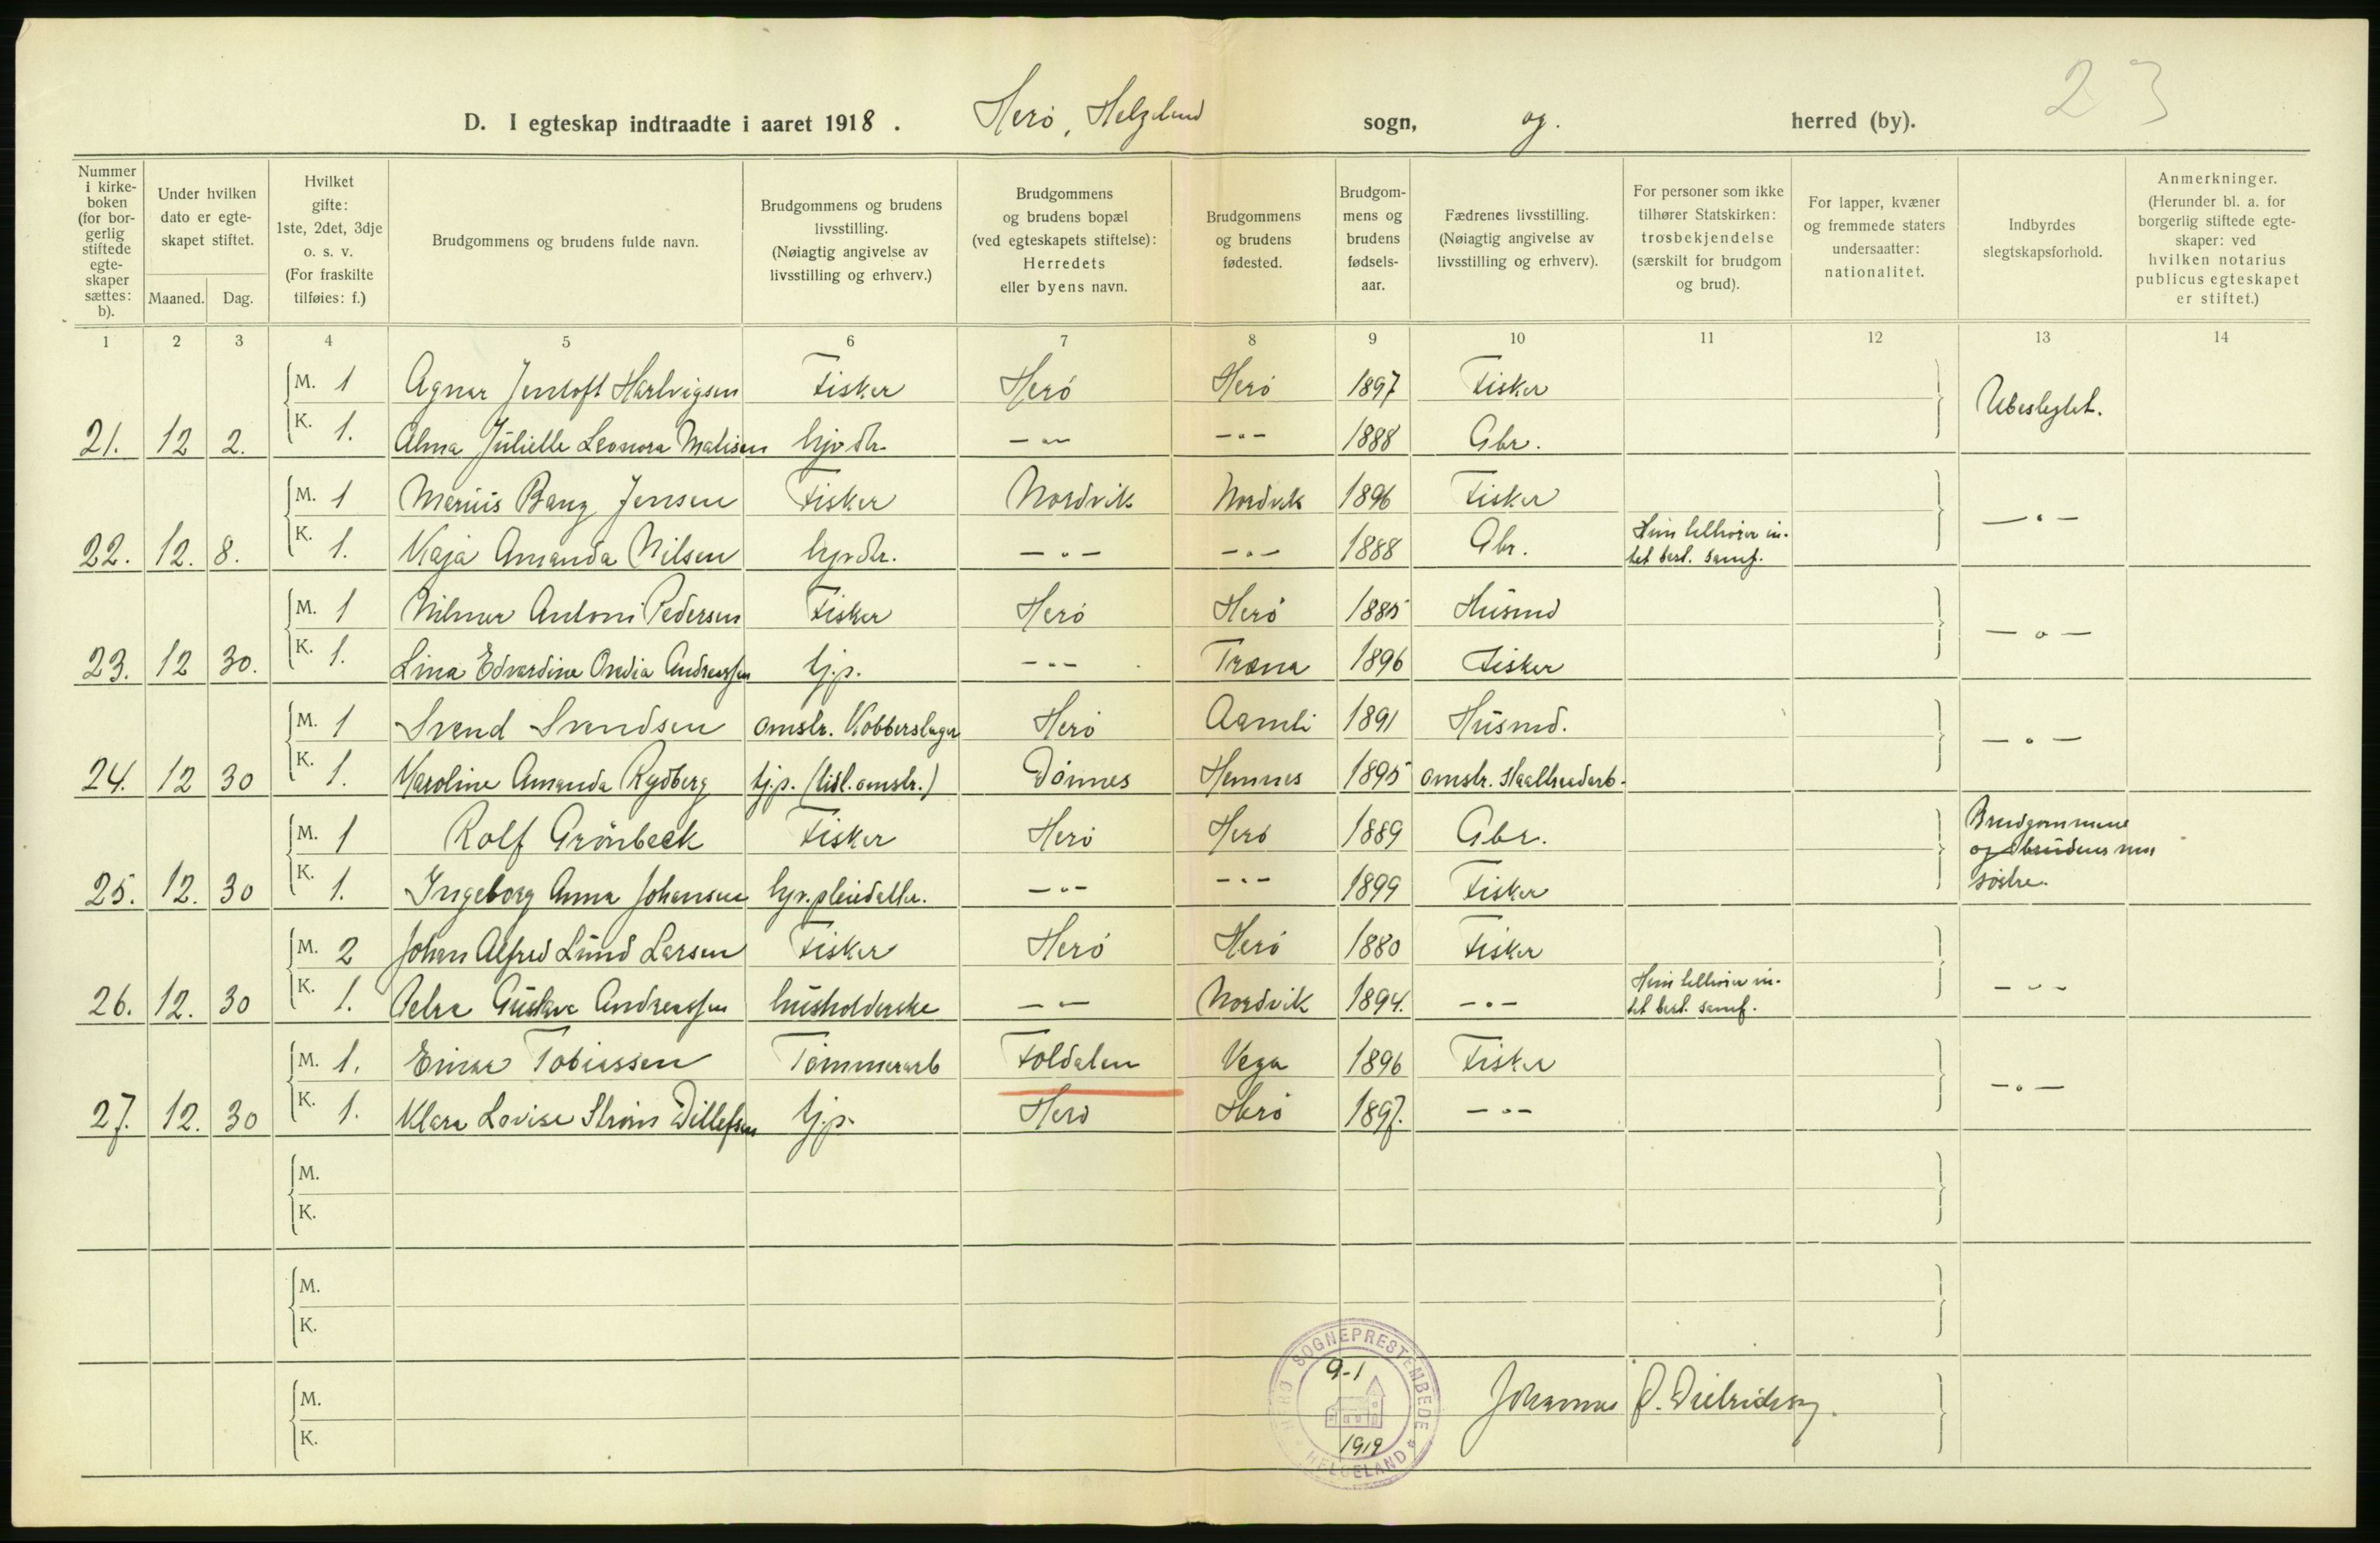 23
D. I egteskap indtraadte i aaret 1918. Herö, Helgeland sogn, og. herred (by).
Nummer i kirke-boken (for bor-gerlig stiftede egte-skaper sættes: b).
Under hvilken dato er egte-skapet stiftet.
Maaned. Dag.
Hvilket gifte: 1ste, 2det, 3dje o. s. v. (For fraskilte tilføies: f.)
Brudgommens og brudens fulde navn.
Brudgommens og brudens livsstilling. (Nøiagtig angivelse av livsstilling og erhverv.)
Brudgommens og brudens bopæl (ved egteskapets stiftelse): Herredets eller byens navn.
Brudgommens og brudens fødested.
Brudgom-mens og brudens fødsels-aar.
Fædrenes livsstilling. (Nøiagtig angivelse av livsstilling og erhverv).
For personer som ikke tilhører Statskirken: trosbekjendelse (særskilt for brudgom og brud).
For lapper, kvæner og fremmede staters undersaatter: nationalitet.
Indbyrdes slegtskapsforhold.
Anmerkninger. (Herunder bl. a. for borgerlig stiftede egte-skaper: ved hvilken notarius publicus egteskapet er stiftet.)
1 2 3 4 5 6 7 8 9 10 11 12 13 14
M. 1 Agnar Jentoft Hartvigsen Fisker Herö Herö 1897 Fisker Ubeslegtet.
21. 12 2. K. 1. Alma Julielle Leonora Matisen hjv dtr. -"- -"- 1888 Gbr.
M. 1 Marius Bang Jensen Fisker Nordvik Nordvik 1896 Fisker -"-
22. 12. 8. K. 1. Kaja Amanda Nilsen hjv dtr. -"- -"- 1888 Gbr. Hun tilhörer in-
tet best. samf.
M. 1 Hilmer Antoni Pedersen Fisker Herö Herö 1885 Husmd -"-
23. 12 30. K. 1. Lina Edvardine Ovedia Andreassen tj.p. -"- Træna 1896 Fisker
M. 1 Svend Svendsen omstr. Kobberslager Herö Aamli 1891 Husmd. -"-
24. 12 30 K. 1. Karoline Amanda Rydberg tj.p. (tidl. omstr.) Dönnes Hemnes 1895 omstr. Staaltraadarb.
M. 1 Rolf Grönbeck Fisker Herö Herö 1889 Gbr. Brudgommens
og brudens mor
söstre.
25. 12. 30 K. 1. Ingeborg Anna Johansen hjv. pleiedatter. -"- -"- 1899 Fisker
M. 2 Johan Alfred Lund Larsen Fisker Herö Herö 1880 Fisker -"-
26. 12. 30 K. 1. Petra Gustava Andreassen husholderske -"- Nordvik 1894. -"- Hun tilhörer in-
tet best. samf.
M. 1. Einar Tobiassen Tömmerarb Foldalen Vega 1896 Fisker -"-
27. 12. 30 K. 1. Klara Lovise Ström Dillefsen tj.p. Herö Herö 1897. -"-
M.
K.
M.
K.
M.
K.
HERØ SOGNEPRESTEMBEDE * HELGELAND *
9-1
1919
Johannes